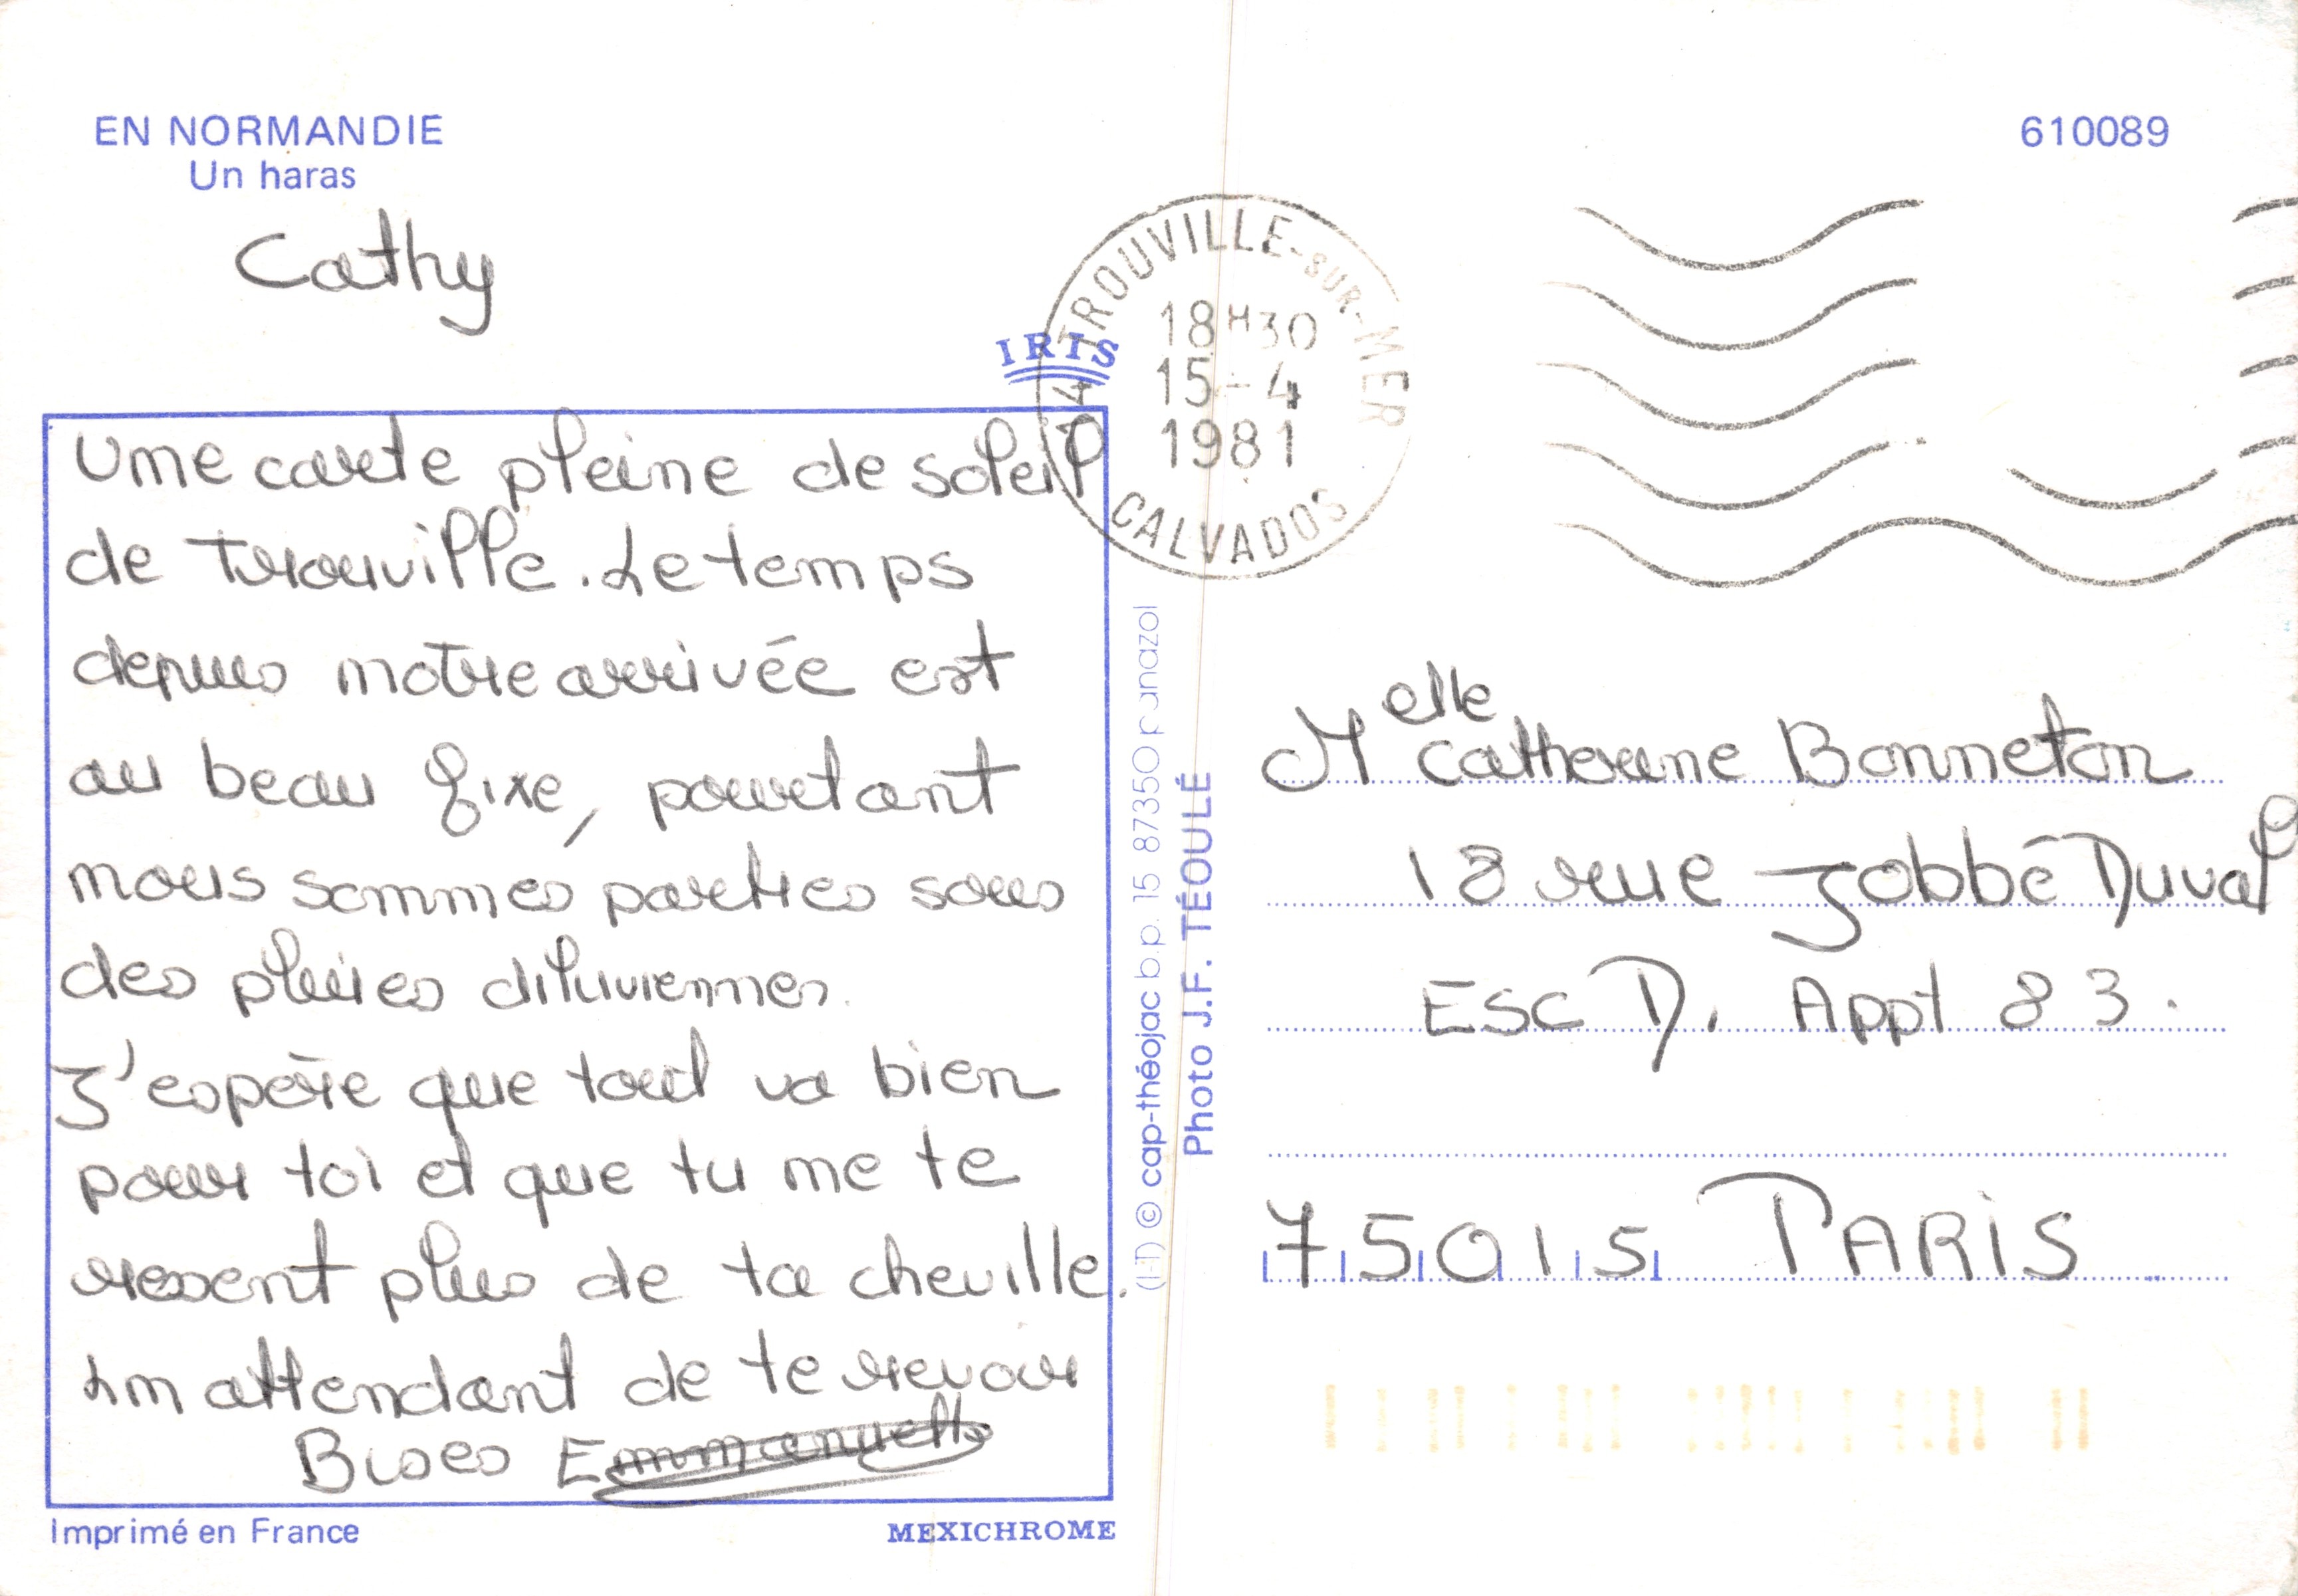 EN NORMANDIE
Un haras
610089
Cathy
IRIS
14 TROUVILLE-SUR-MER
18H30
15-4
1981
CALVADOS
Une carte pleine de soleil
de Trouville. Le temps
depuis notre arrivée est
au beau fixe, pourtant
nous sommes parties sous
des pluies diluviennes.
J'espère que tout va bien
pour toi et que tu ne te
ressent plus de ta cheville.
En attendant de te revoir
Bises Emmanuelle
Imprimé en France
MEXICHROME
© cap-théojac b.p. 15 87350 panazol
Photo J.F. TÉOULÉ
Melle Catherine Bonneton
18 rue Jobbé Duval
ESC D. Appt 83.
75015 PARIS